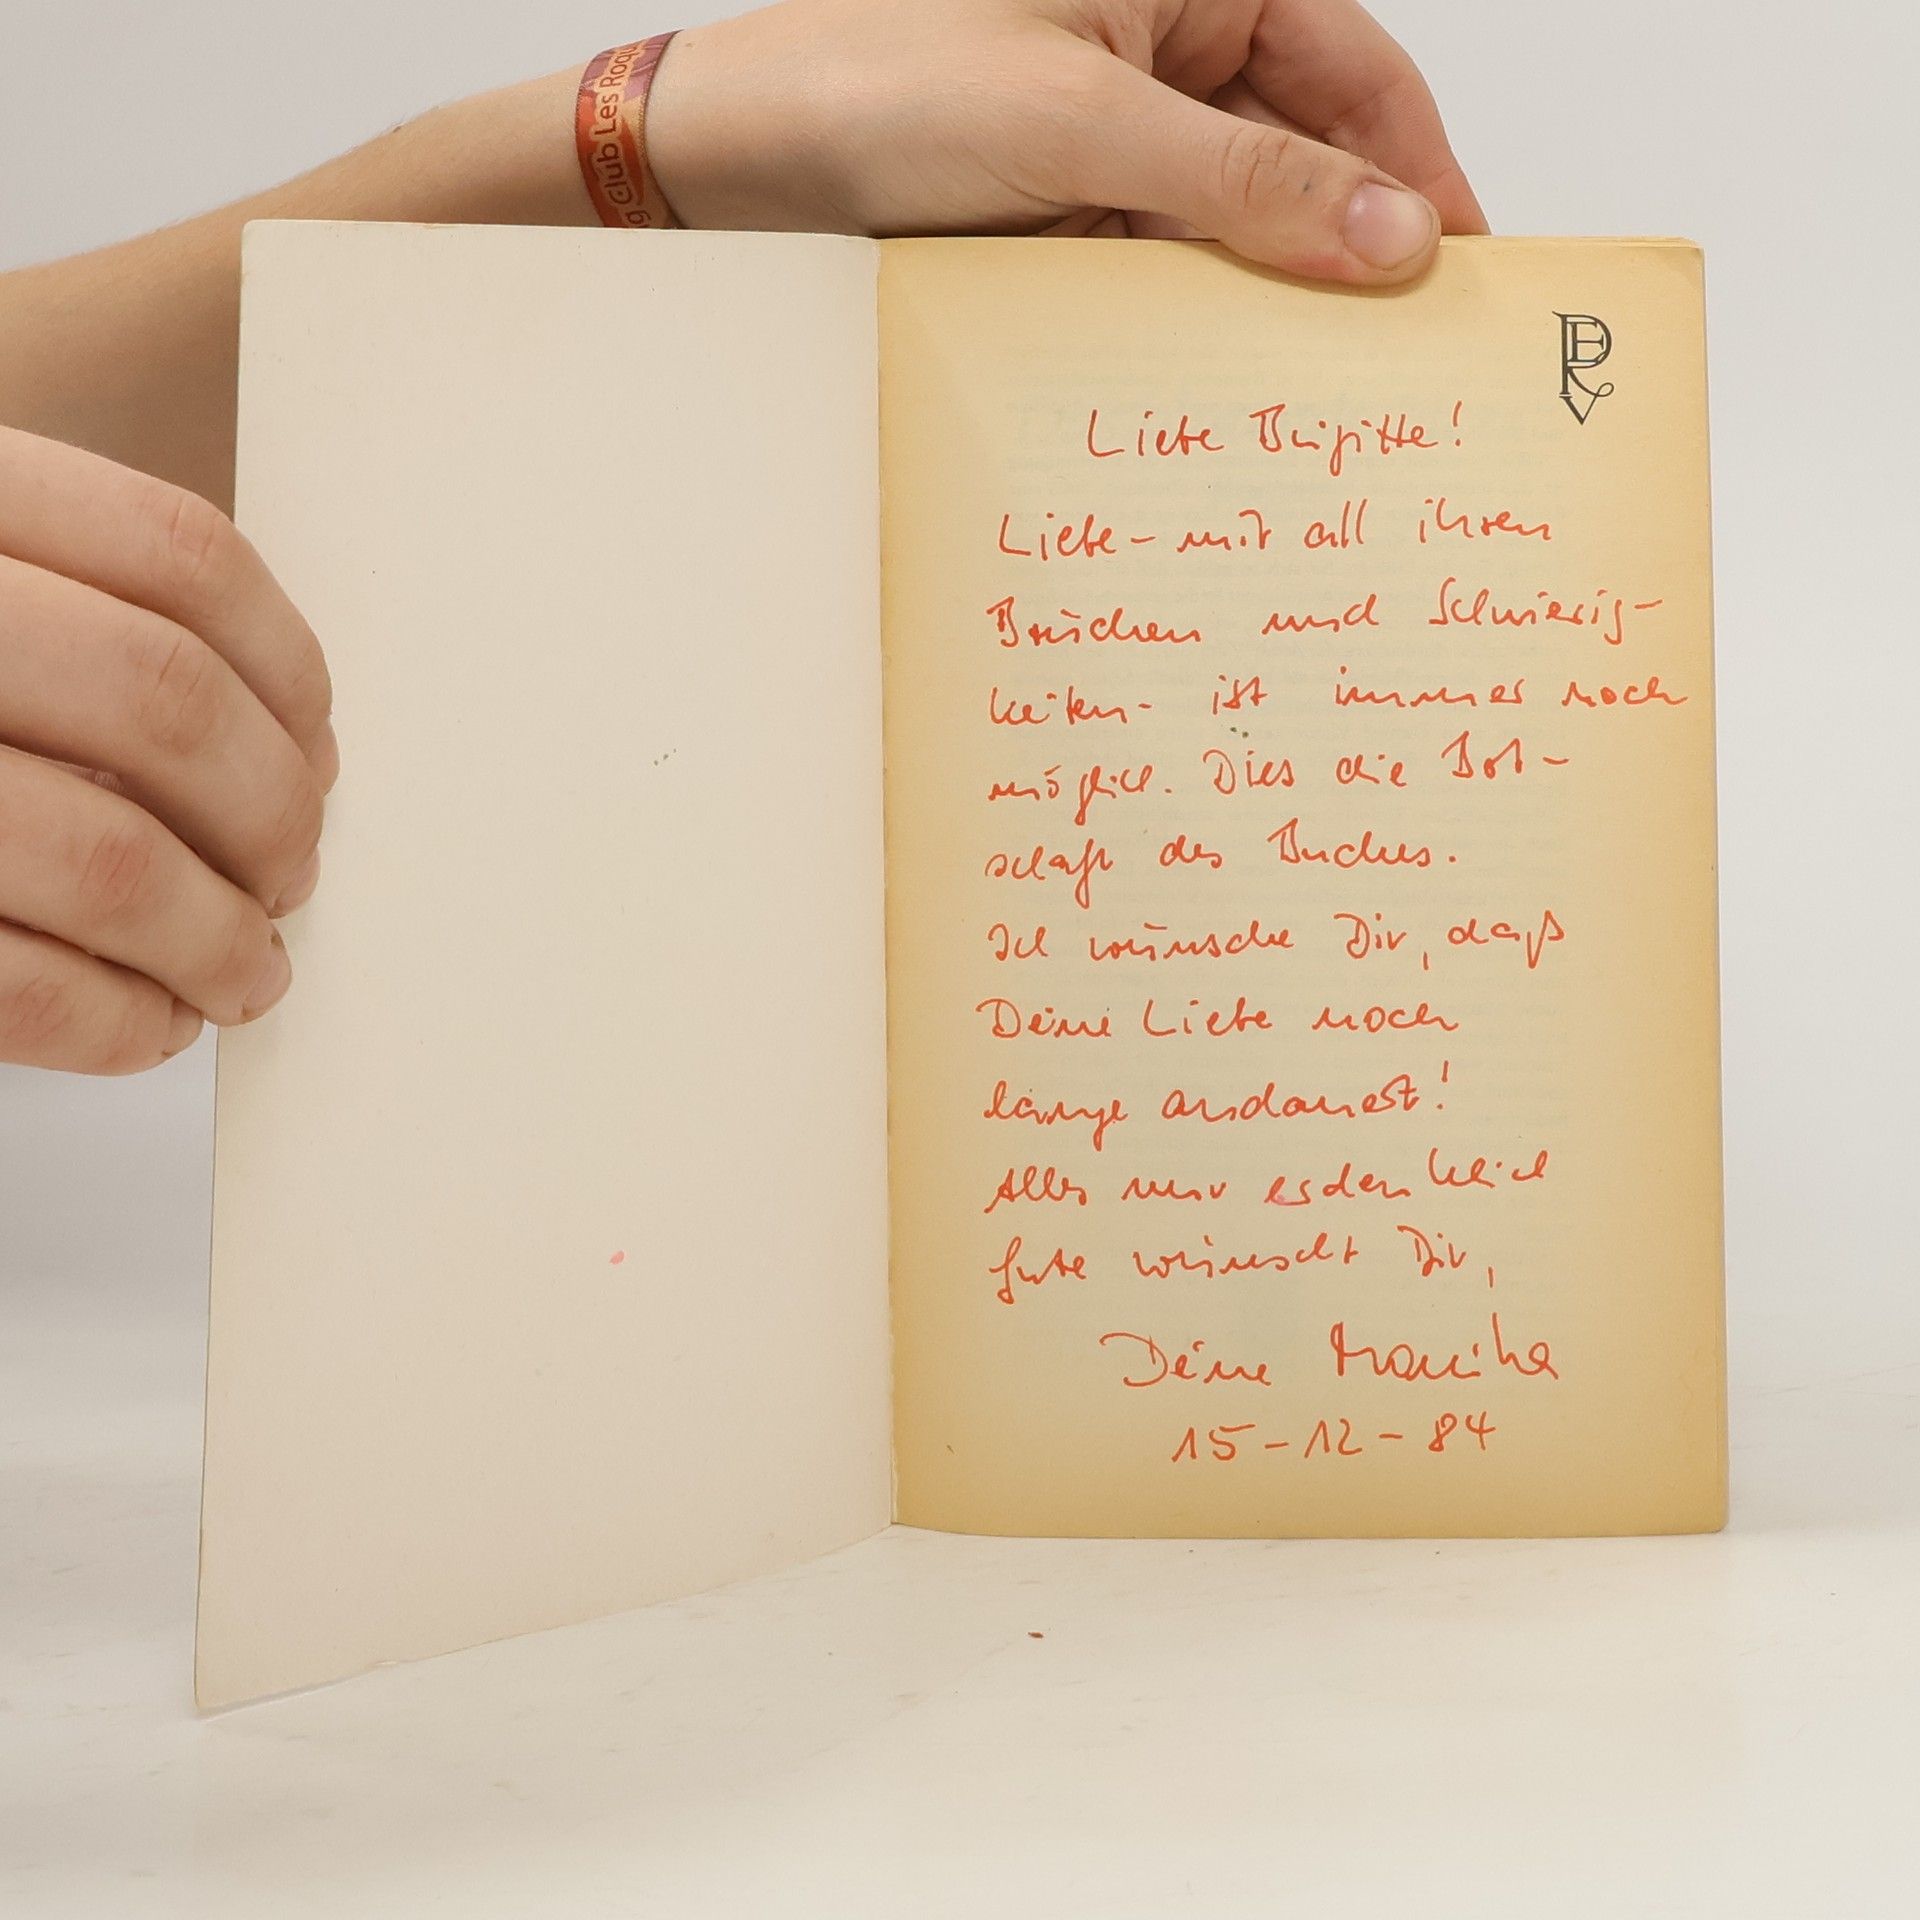 ng Club Les Roqu
PERV
Liebe Brigitte!
Liebe - mit all ihren
Brüchen und Schwierig-
keiten - ist immer noch
möglich. Dies die Bot-
schaft des Buches.
Ich wünsche Dir, daß
Deine Liebe noch
lange andauert!
Alles nur erdenklich
Gute wünscht Dir,
Deine Monika
15-12-84